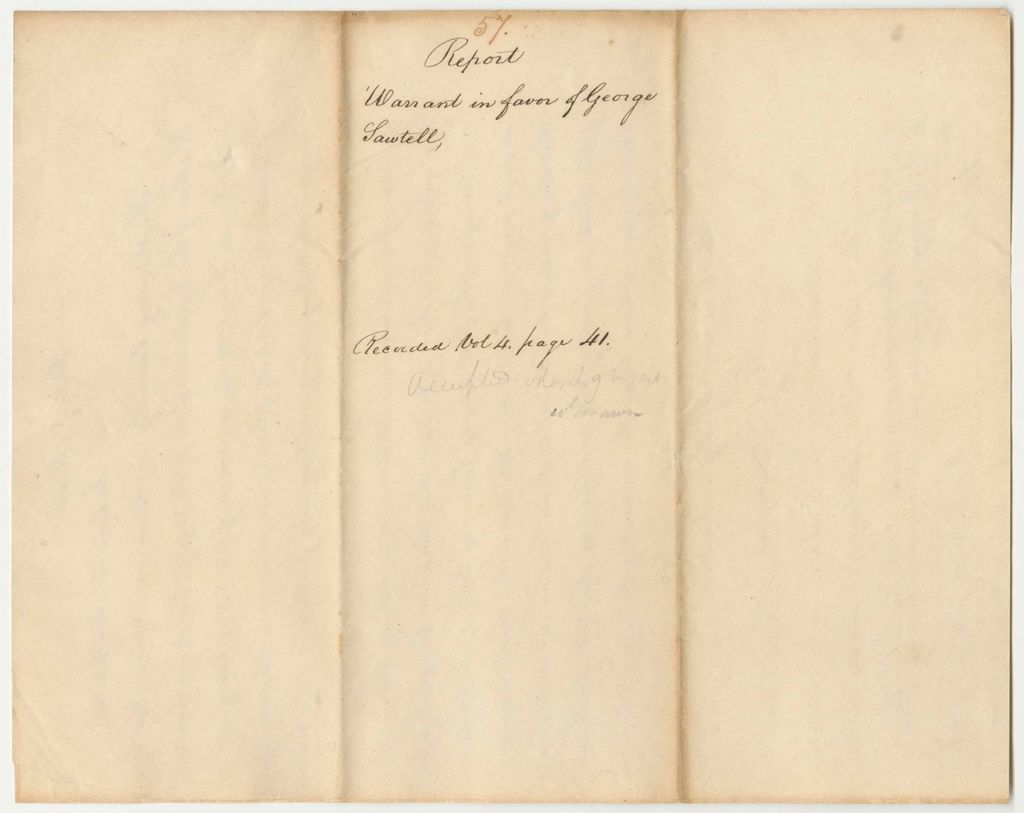 57.
Report
Warrant in favor of George
Sawtell,
Recorded Vol 4. page 41.
Accepted March 9